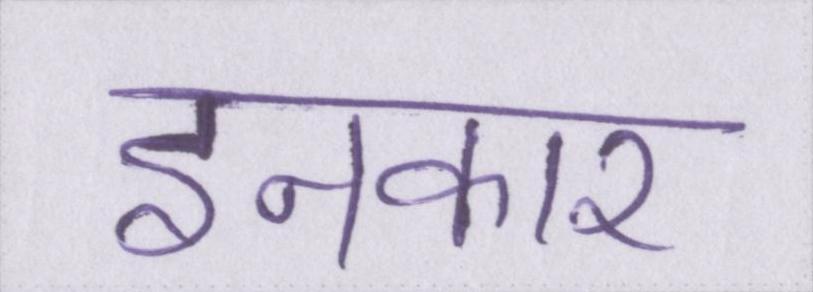 इनकार